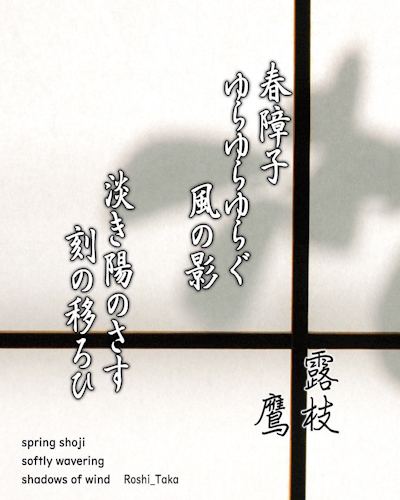 春障子
ゆらゆらゆらぐ
風の影
淡き陽のさす
刻の移ろひ
露枝
鷹
spring shoji
softly wavering
shadows of wind Roshi_Taka